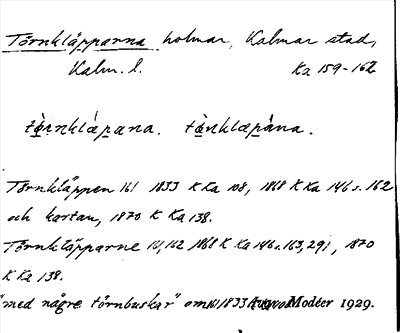 Törnkläpparna holmar, Kalmar stad,
Kalm. l. Ka 159-162
tè̠rnklǽpana. tæ̀nklæpàna.
Törnkläppen 161 1833 K Ka 108, 1868 K Ka 146 s. 162
och kartan, 1870 K Ka 138.
Törnkläpparne 161,162 1868 K Ka 146 s. 163, 291, 1870
K Ka 138.
"med någre törnbuskar" om 161 1833 K Ka 108 Modéer 1929.